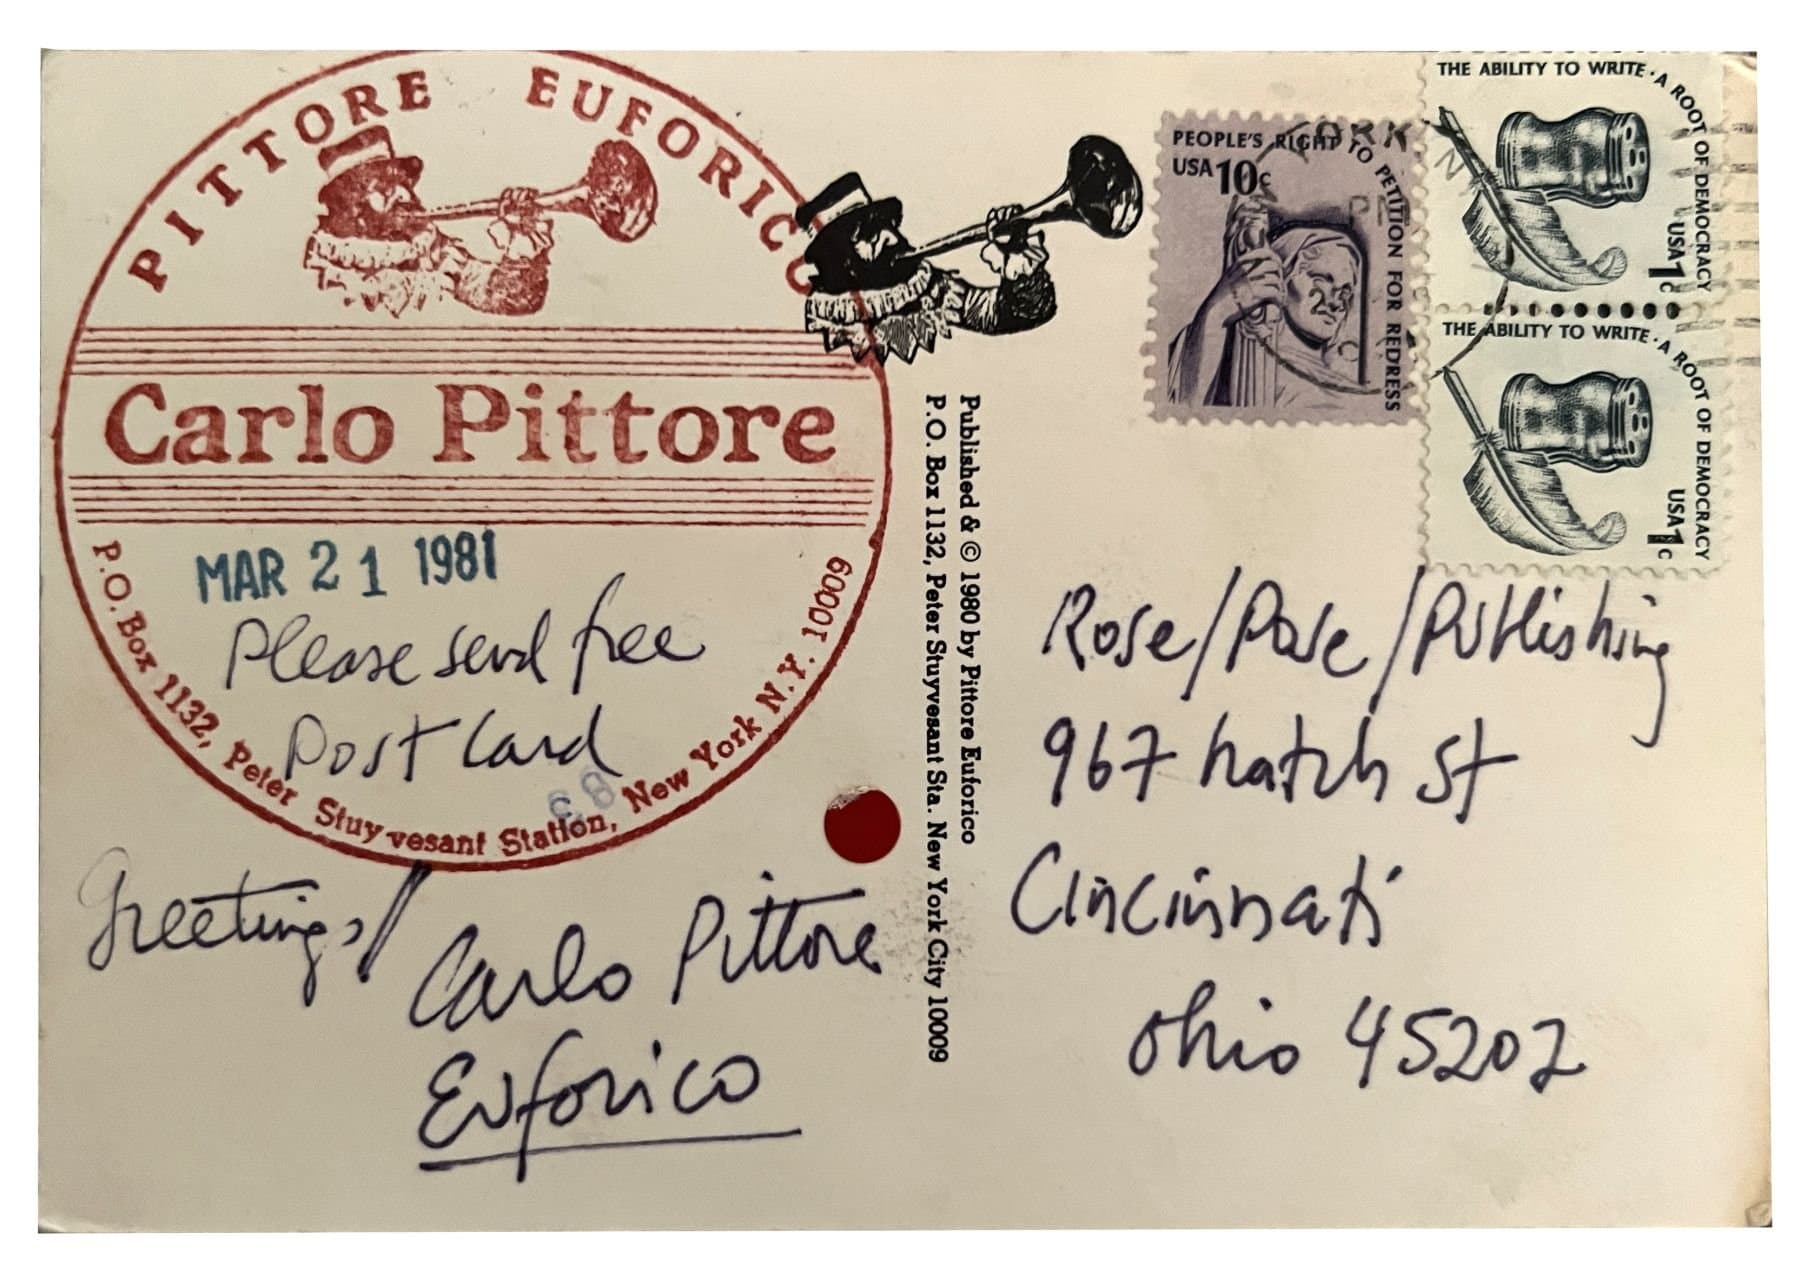 PITTORE EUFORICO
Carlo Pittore
P.O. Box 1132, Peter Stuyvesant Station, New York N.Y. 10009
MAR 21 1981
Please send free
Post Card
Greetings,
Carlo Pittore
Euforico
Published & © 1980 by Pittore Euforico
P.O. Box 1132, Peter Stuyvesant Sta. New York City 10009
PEOPLE'S RIGHT TO PETITION FOR REDRESS
USA 10c
THE ABILITY TO WRITE · A ROOT OF DEMOCRACY
USA 1c
THE ABILITY TO WRITE · A ROOT OF DEMOCRACY
USA 1c
Rose/Pose/Publishing
967 Hatch St
Cincinnati
Ohio 45202